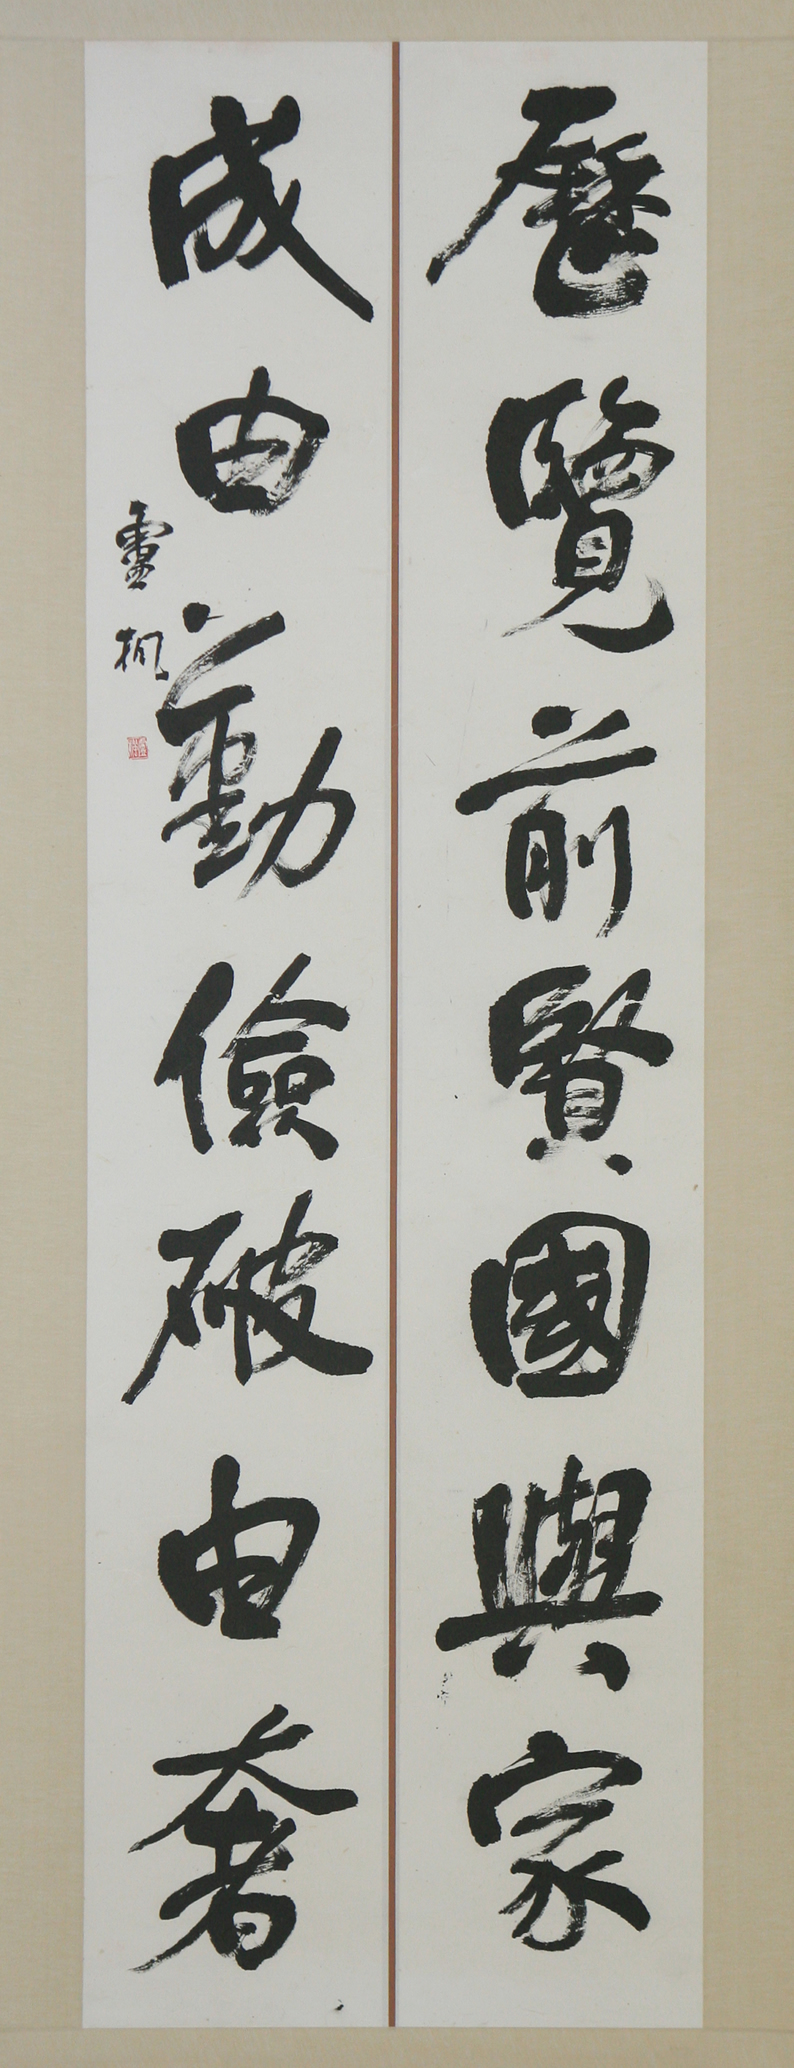 歷覽前賢國與家
成由勤儉破由奢
靈楓